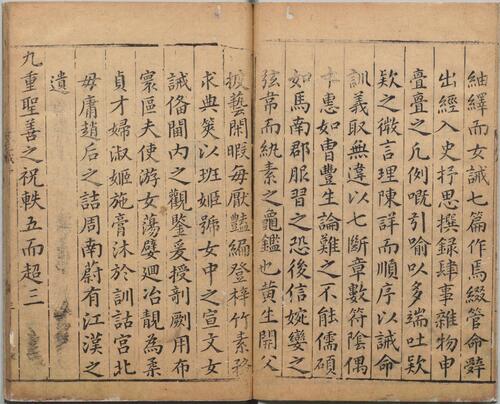 紬繹而女誡七篇作焉綴管命辭
出經入史抒思撰録肆事雜物申
疊疊之凡例嘅引喻以多端吐欵
欵之微言理陳詳而順序以誡命
訓義取無違以七斷章數符陰偶
惠如曹豐生論難之不能儒碩
如馬南郡服習之恐後信婉孌之
弦韋而紈素之龜鑑也黄生開父
披藝閑暇毎厭豔編登梓竹素務
求典筴以班姬號女中之宣文女
誡俻閫内之觀鑒爰授剞劂用布
寰區夫使游女蕩襞廻冶靚為柔
貞才婦淑姬施膏沐於訓詁宮北
毋庸趙后之詰周南蔚有江漢之
遺
九重聖善之祝軼五而超三